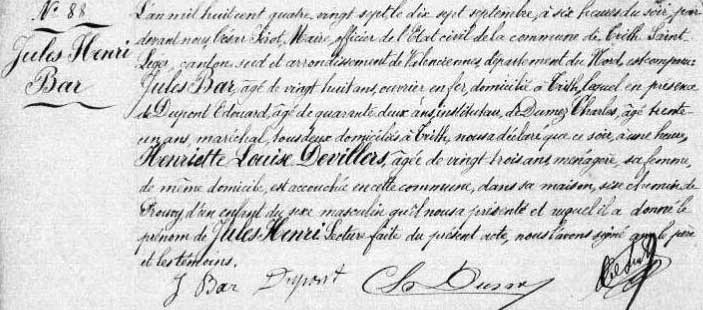 N° 88
Jules Henri
Bar
L'an mil huit cent quatre vingt sept, le dix sept septembre, à six heures du soir, par
devant nous César Sirot, Maire, officier de l'Etat civil de la commune de Trith Saint
Leger, canton sud et arrondissement de Valenciennes, département du Nord, est comparu:
Jules Bar, âgé de vingt huit ans, ouvrier en fer, domicilié à Trith, lequel en présence
de Dupont Edouard, âgé de quarante deux ans, instituteur, de Dumez Charles, âgé trente
un ans, maréchal, tous deux domiciliés à Trith, nous a déclaré que ce soir, à une heure,
Henriette Louise Devillers, âgée de vingt trois ans, ménagère, sa femme,
de même domicile, est accouchée en cette commune, dans sa maison, sise chemin de
Rouvy d'un enfant du sexe masculin qu'il nous a présenté et auquel il a donné le
prénom de Jules Henri Lecture faite du présent acte, nous l'avons signé avec le père
et les témoins.
J Bar Dupont Ch Dumez